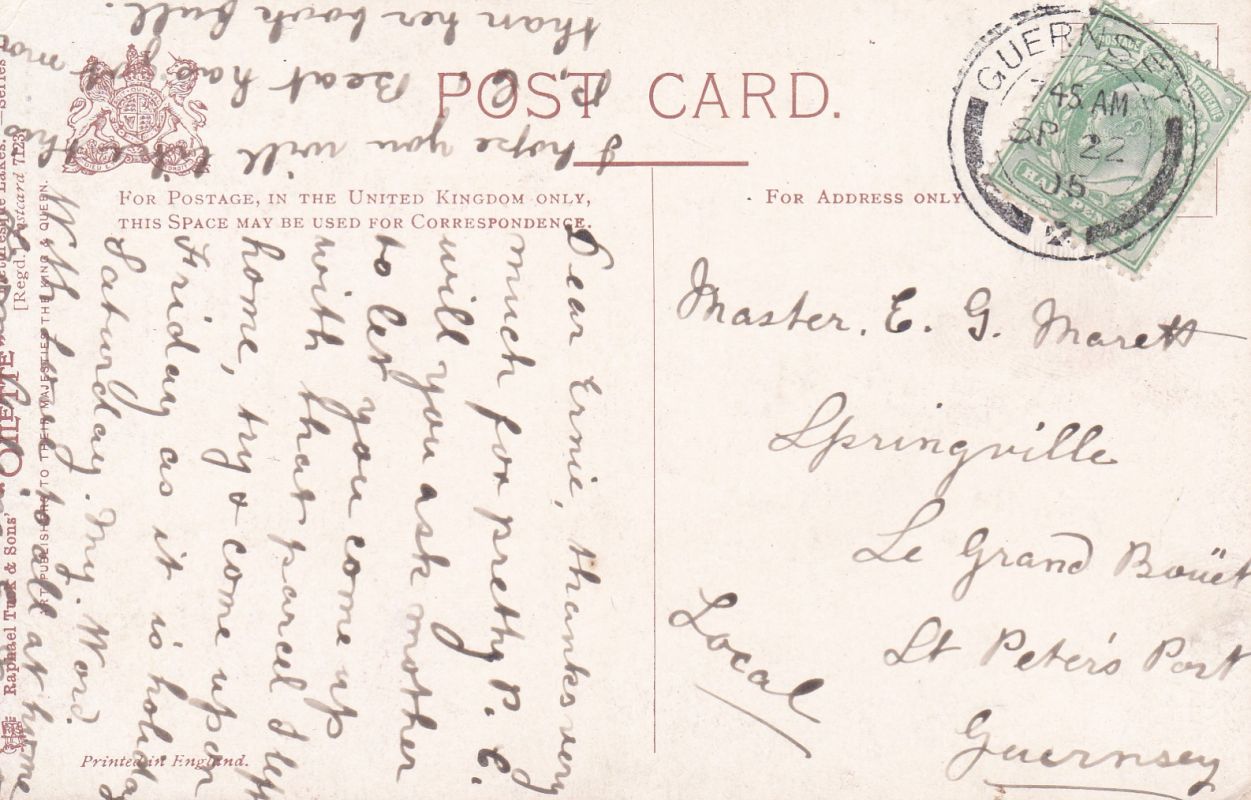 POST CARD.
FOR POSTAGE, IN THE UNITED KINGDOM ONLY,
THIS SPACE MAY BE USED FOR CORRESPONDENCE.
FOR ADDRESS ONLY
GUERNSEY
45 AM
SP 22
05
2
POSTAGE
Dear Ernie, thanks very
much for pretty P. C.
will you ask mother
to let you come up
with that parcel I left
home, try & come up on
Friday as it is holiday
Saturday. My Word.
With love to all at home
I hope you will like this
P. C. Beat has got more
than her book full.
Master. E. G. Marett
Springville
Le Grand Bouët
St Peter's Port
Guernsey
Local
Raphael Tuck & Sons' "OILETTE"
[Regd.] Postcard 7123
ART PUBLISHERS TO THEIR MAJESTIES THE KING & QUEEN.
Printed in England.